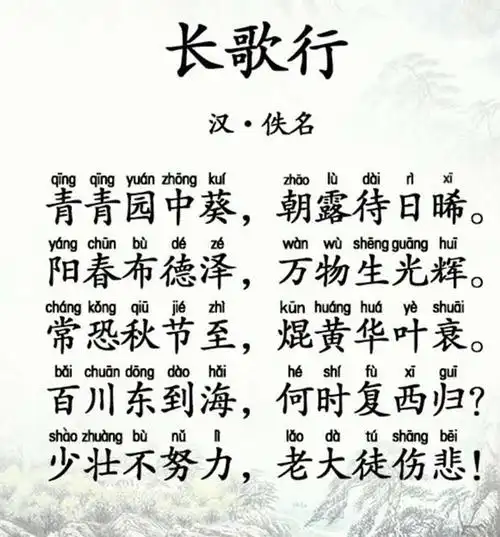 长歌行
汉·佚名
qīng qīng yuán zhōng kuí zhāo lù dài rì xī
青青园中葵，朝露待日晞。
yáng chūn bù dé zé wàn wù shēng guāng huī
阳春布德泽，万物生光辉。
cháng kǒng qiū jié zhì kūn huáng huá yè shuāi
常恐秋节至，焜黄华叶衰。
bǎi chuān dōng dào hǎi hé shí fù xī guī
百川东到海，何时复西归？
shào zhuàng bù nǔ lì lǎo dà tú shāng bēi
少壮不努力，老大徒伤悲！